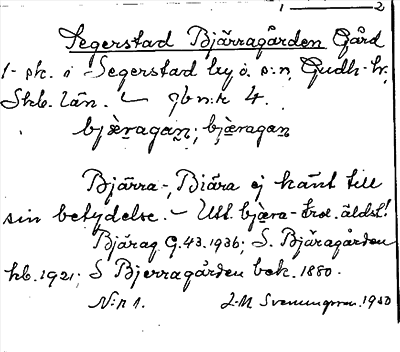 1 — 2
Segerstad Bjärragården Gård
1- sk. i Segerstad by o. s:n, Gudh. hr.
Skb. län. – gbn:r 4.
bjæragan, bjæragan
Bjärra-, Biära ej känt till
sin betydelse. – Utt. bjæra- tro. äldst!
Bjärag G.43.1936; S. Bjäragården
kb. 1921; S Bjerragården bek. 1880.
N:r 1. J.M Svenungsson. 1940